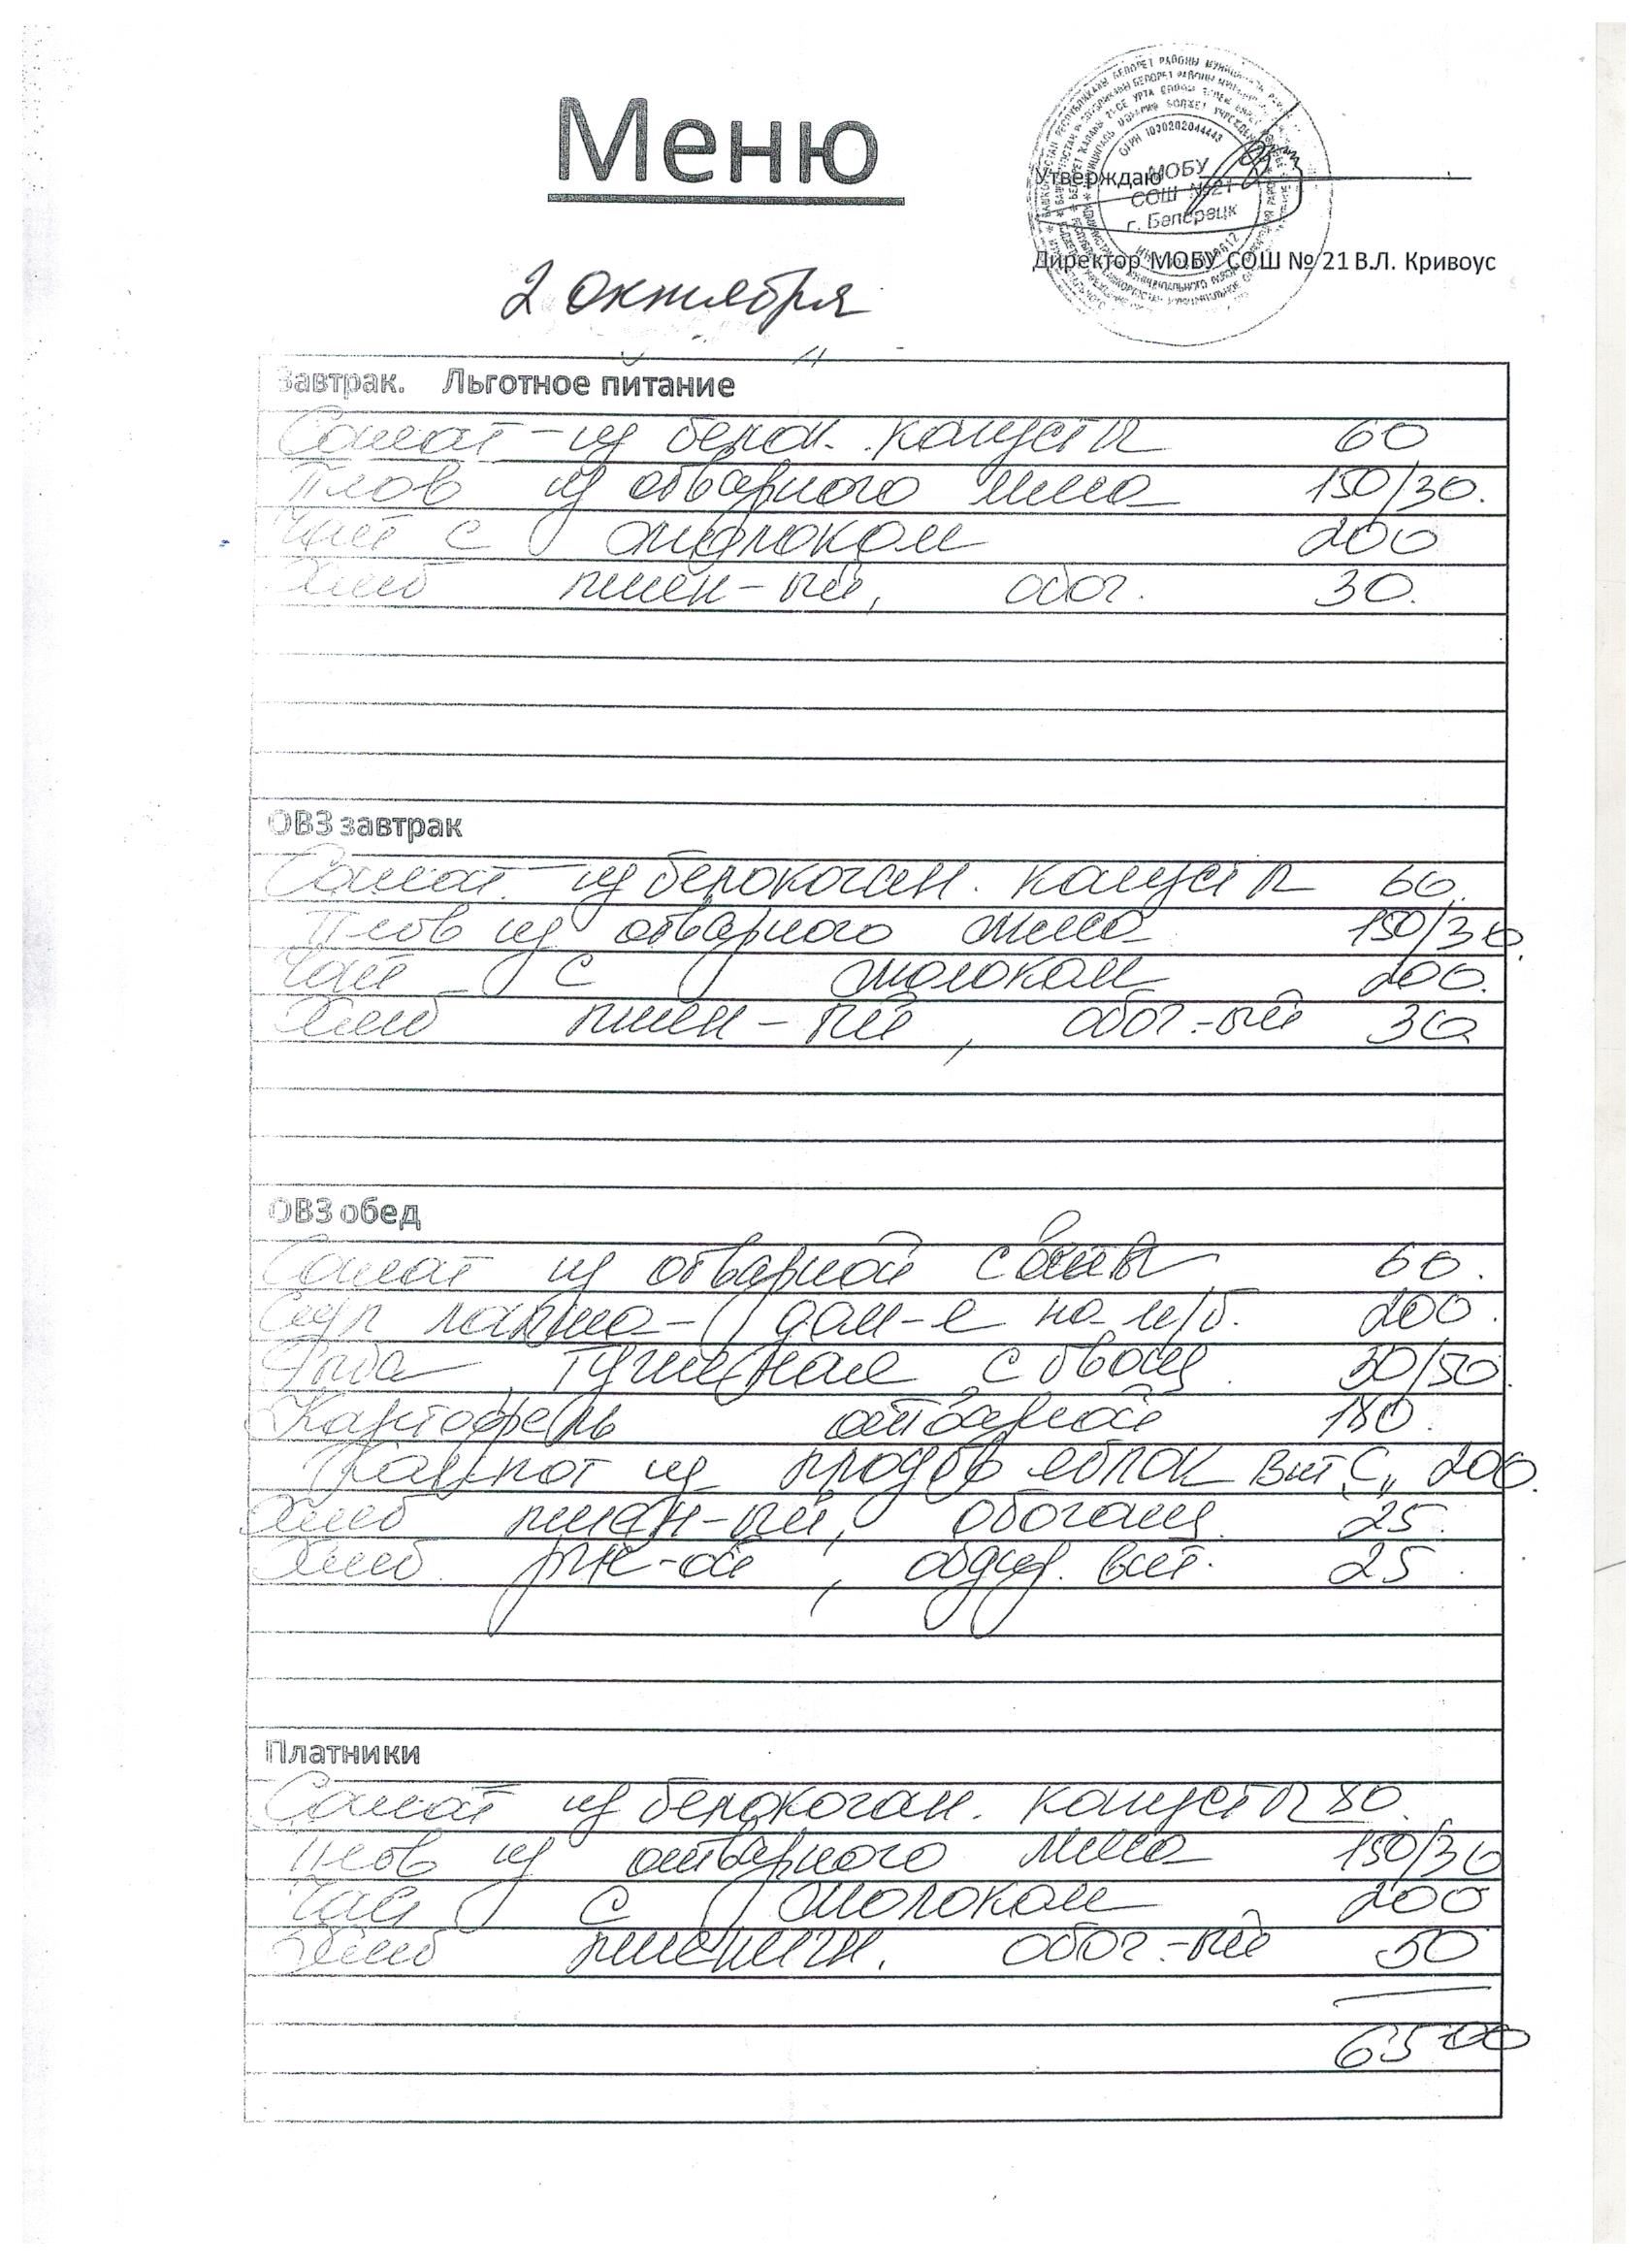 Меню
Утверждаю
ОГРН 1030202044443
МОБУ
СОШ №21
г. Белорецк
Директор МОБУ СОШ № 21 В.Л. Кривоус
2 октября
Завтрак. Льготное питание
Салат из белок. капусты 60
Плов из отварного мяса 150/30.
Чай с молоком 200
Хлеб пшен-ый, обог. 30.
ОВЗ завтрак
Салат из белокочан. капусты 60.
Плов из отварного мяса 150/30.
Чай с молоком 200.
Хлеб пшен-ый, обог.-ый 30
ОВЗ обед
Салат из отварной свеклы 60.
Суп лапша- дом-я на м/б. 200.
Рыба тушеная с овощ. 50/50.
Картофель отварной 180.
Компот из плодов яблок вит "С" 200.
Хлеб пшен-ый, обогащ. 25.
Хлеб рж-ой, обдир. вит. 25.
Платники
Салат из белокочан. капусты 80.
Плов из отварного мяса 150/30
Чай с молоком 200
Хлеб пшеничн. обог.-ый 50
65-00